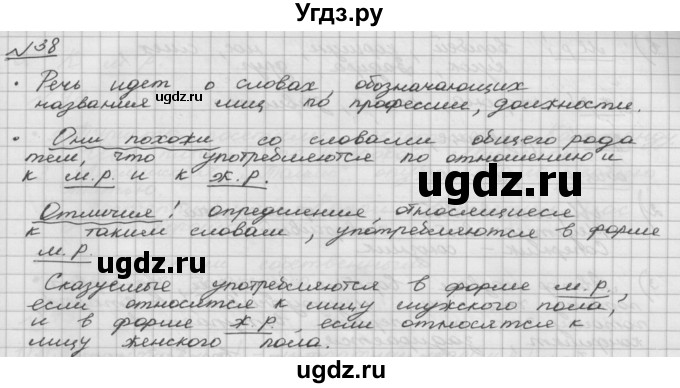 Угдз.ру
№38
• Речь идет о словах, обозначающих
названия лиц по профессии, должности.
• Они похожи со словами общего рода
тем, что употребляются по отношению и
к м.р. и к ж.р.
Отличия! определения, относящиеся
к таким словам, употребляются в форме
м.р.
Сказуемые употребляются в форме м.р.,
если относятся к лицу мужского пола,
и в форме ж.р., если относятся к
лицу женского пола.
ugdz.ru
ugdz.ru
ugdz.ru
ugdz.ru
ugdz.ru
Угдз.ру